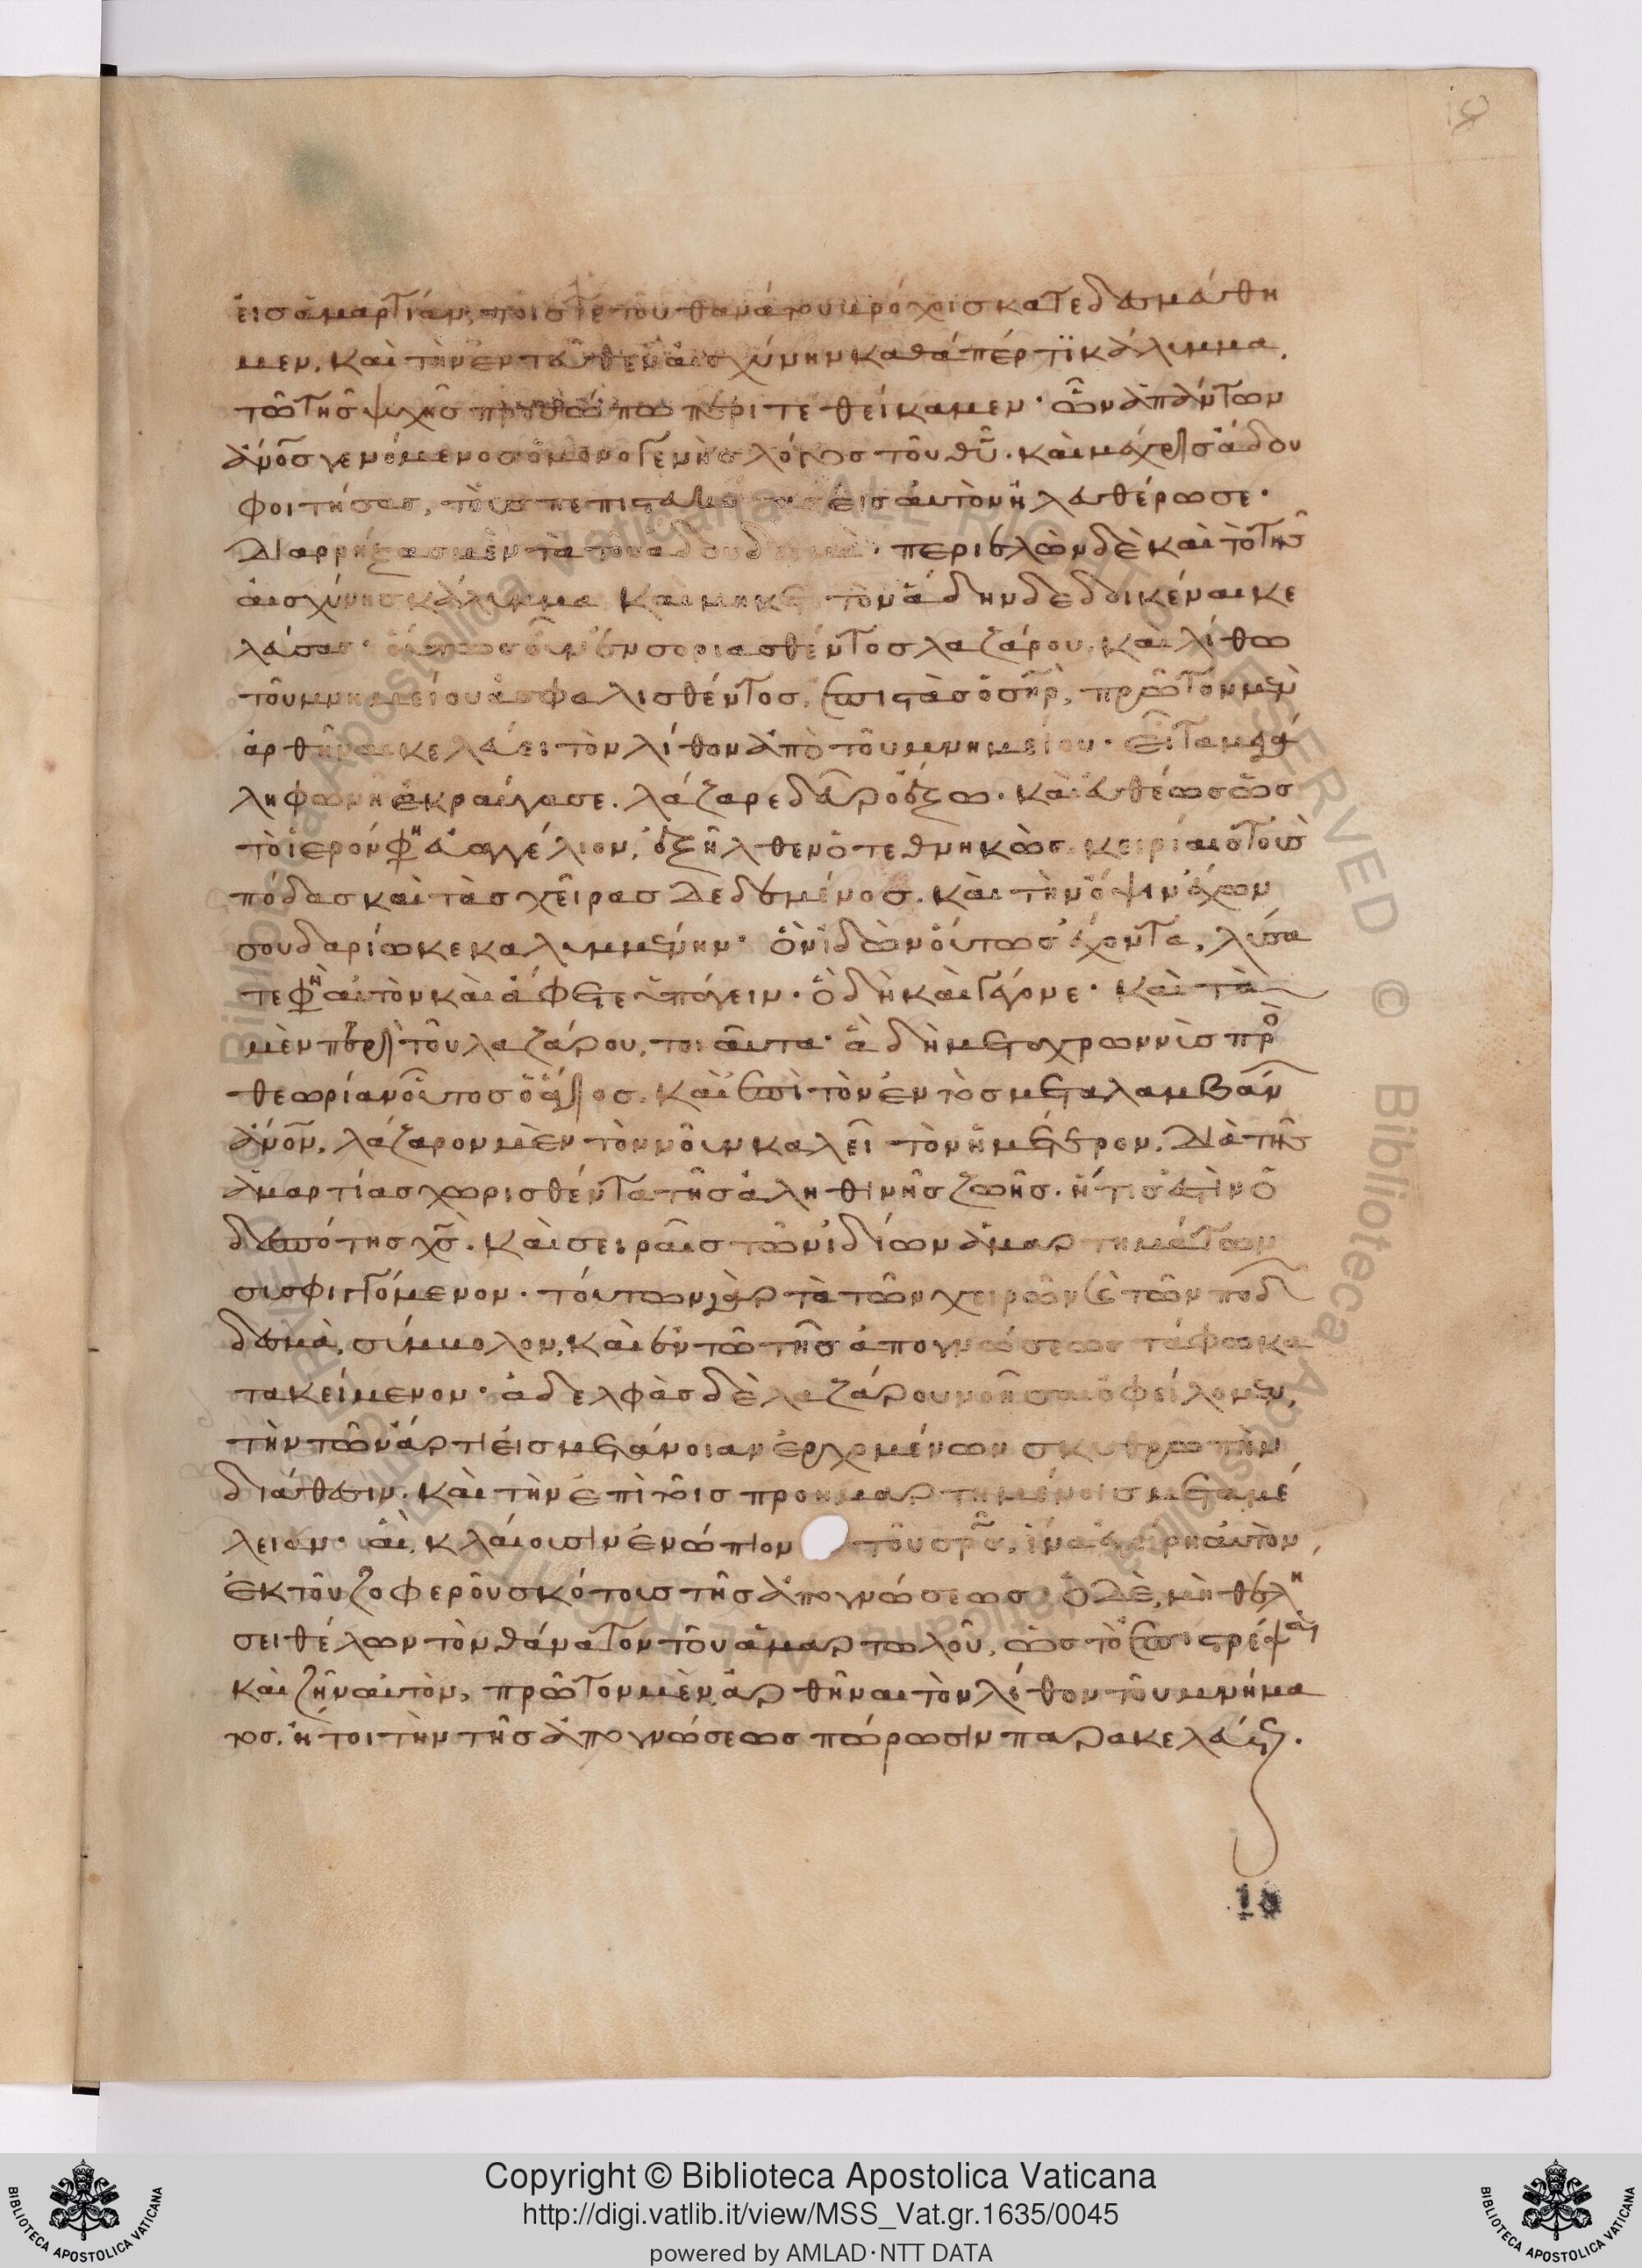 εἰς ἁμαρτίαν, τοῖς τε τοῦ θανάτου βρόχοις κατεδεσμεύθη
μεν. καὶ τὴν ἐντεῦθεν αἰσχύνην καθάπέρ τϊ κάλυμμα.
τῶ τῆς ψυχῆς προσώπω περιτεθείκαμεν· ὧν ἁπάντων
ἄνος γενόμενος ὁ μονογενὴς λόγος τοῦ θῦ. καὶ μέχρις ἅδου
φοιτήσας, τοὺς πεπιστευκότας εἰς αὐτὸν ἠλευθέρωσε·
διαρρήξας μὲν τὰ τοῦ ἅδου δεσμὰ· περιελὼν δὲ καὶ τὸ τῆς
αἰσχύνης κάλυμμα καὶ μηκέτι τὸν ἅδην δεδοικέναι κε
λεύσας· οὕτως οὖν ἐνσοριασθέντος λαζάρου. καὶ λίθω
τοῦ μνημείου ἀσφαλισθέντος, ἐπιστὰς ὁ σηρ, πρῶτον μὲν
ἀρθῆναι κελεύει τὸν λίθον ἀπὸ τοῦ μνημείου· εἶτα μεγά
λη φωνῆ ἐκραύγασε. λάζαρε δεῦρο ἔξω. καὶ εὐθέως ὥς
τὸ ἱερόν φη εὐαγγέλιον, ἐξῆλθεν ὁ τεθνηκὼς κειρίαις τοὺς
πόδας καὶ τὰς χεῖρας δεδεμένος. καὶ τὴν ὄψιν ἔχων
σουδαρίω κεκαλυμμένην· ὃν ἰδὼν οὕτως ἔχοντα, λύσα
τε φη αὐτὸν καὶ ἄφετε ὑπάγειν· ὃ δὴ καὶ γέγονε· καὶ τὰ
μὲν περὶ τοῦ λαζάρου, τοιαῦτα· ἃ δὴ μετοχετεύων εἰς προ
θεωρίαν οὗτος ὁ ἅγιος. καὶ ἐπὶ τὸν ἐντὸς μεταλαμβάν
ἄνον, λάζαρον μὲν τὸν νοῦν καλεῖ τὸν ἡμέτερον. διὰ τῆς
ἁμαρτίας χωρισθέντα τῆς ἀληθινῆς ζωῆς. ἥτις ἐστὶν ὁ
δεσπότης χς. καὶ σειραῖς τῶν ἰδίων ἁμαρτημάτων
σισφιγγόμενον· τούτων γὰρ τὰ τῶν χειρῶν καὶ τῶν ποδ
δεσμὰ, σύμμολον, καὶ ἐν τῶ τῆς ἀπογνώσεως τάφω κα
τακείμενον· ἀδελφὰς δὲ λαζάρου νοῆσαι ὀφείλομεν,
τὴν τῶν ἄρτι εἰς μετάνοιαν ἐρχομένων σκυθρωπὴν
διάθεσιν. καὶ τὴν ἐπὶ τοῖς προημαρτημένοις μεταμέ
λειαν· αἳ, κλαίουσιν ἐνώπιον τοῦ σρς, ἵνα ἐγείρη αὐτὸν,
ἐκ τοῦ ζοφεροῦ σκότους τῆς ἀπογνώσεως· ὁ δὲ, μὴ θελή
σει θέλων τὸν θάνατον τοῦ ἁμαρτωλοῦ, ὡς τὸ ἐπιστρέψαι
καὶ ζῆν αὐτὸν, πρῶτον μὲν ἀρθῆναι τὸν λίθον τοῦ μνήμα
τος. ἤτοι τὴν τῆς ἀπογνώσεως πώρωσιν παρακελεύετ.
Copyright © Biblioteca Apostolica Vaticana
http://digi.vatlib.it/view/MSS_Vat.gr.1635/0045
powered by AMLAD·NTT DATA